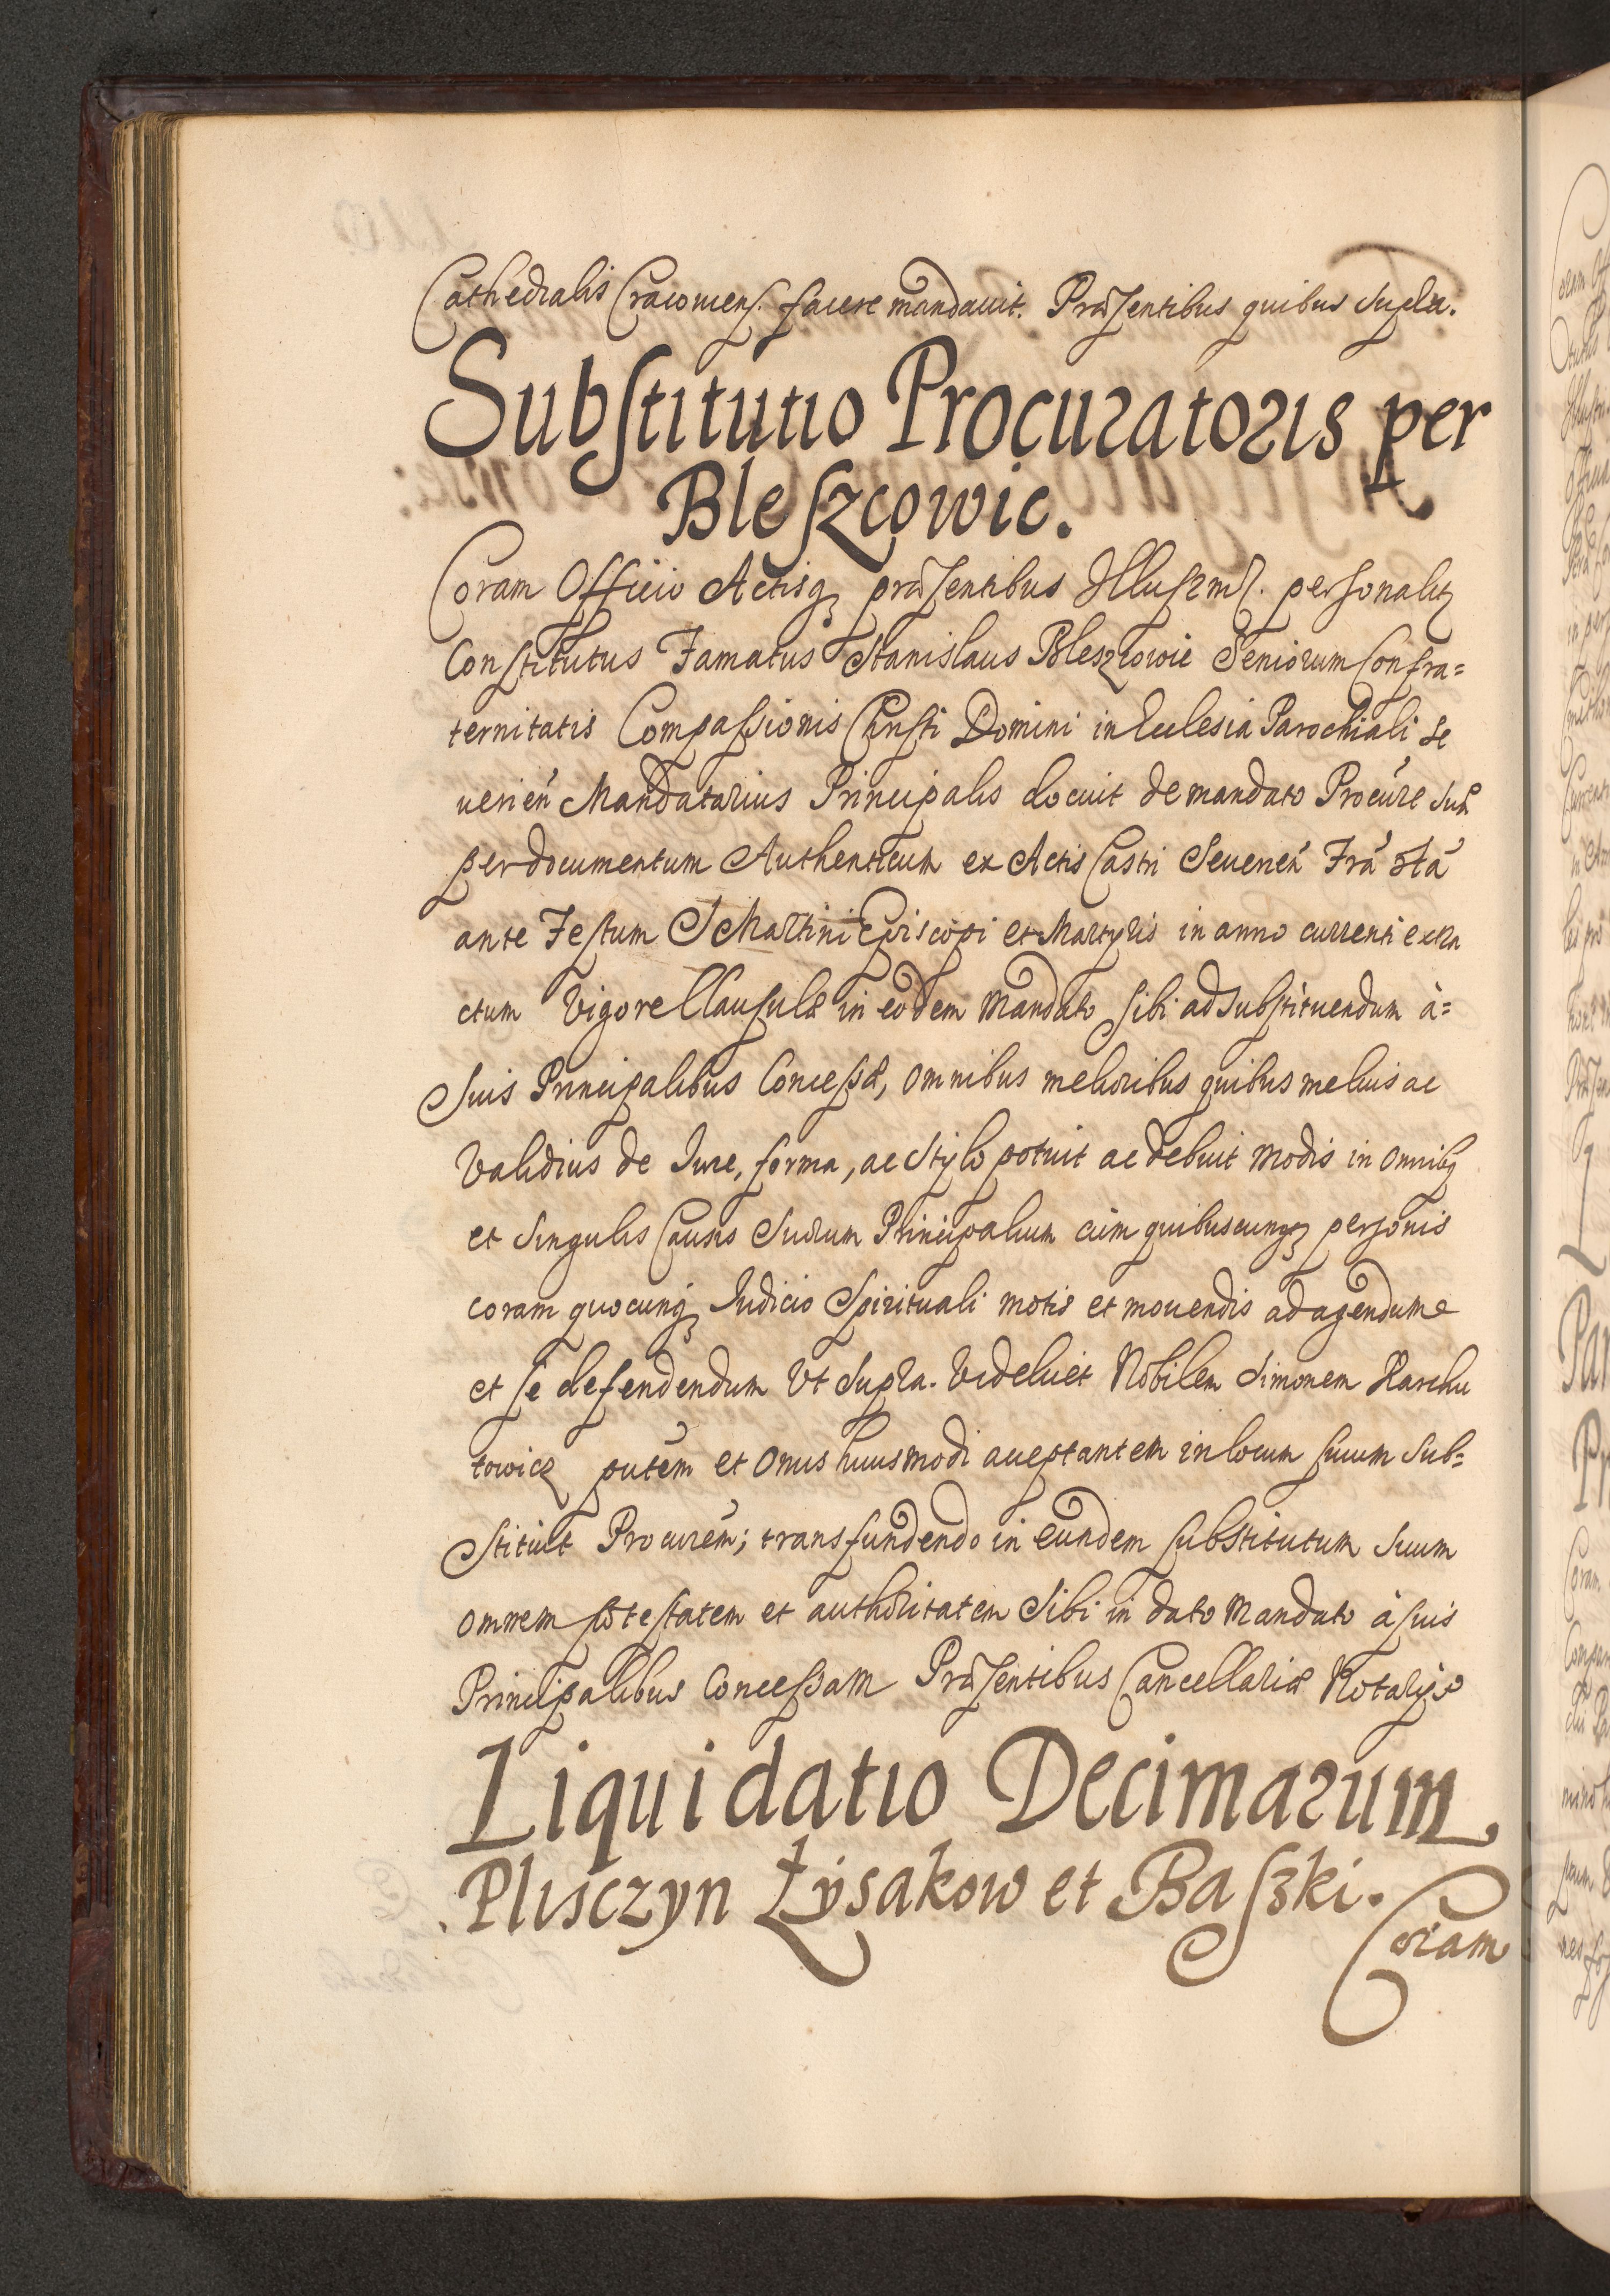 Cathedralis Cracouiens. facere mandauit. Præsentibus quibus supra.
Substitutio Procuratoris per
Bleszcowic.
Coram Officio Actisq præsentibus Illusrms. personalit
Constitutus Famatus Stanislaus Bleszcowic Seniorum Confra=
ternitatis Compassionis Christi Domini in Ecclesia Parochiali Se
uerien Mandatarius Principalis docuit de mandato Procure suæ
per documentum Authenticum ex Actis Castri Seuerien Fra 5ta
ante Festum S Martini Episcopi et Martyris in anno currenti extra
ctum Vigore Clausulæ in eodem Mandato sibi ad substituendum à=
Suis Principalibus Concessæ, omnibus melioribus quibus melius ac
Validius de Iure, forma, ac stylo potuit ac debuit modis in omnibq
et singulis Causis Suorum Principalium cum quibuscunq personis
coram quocunq Iudicio Spirituali motis et mouendis ad agendum
et se defendendum Vt supra. Videlicet Nobilem Simonem Karchu
towicz putem et onus huiusmodi acceptantem in locum suum Sub=
stituit Procurem; transfundendo in eundem substitutum suum
omnem potestatem et authoritatem sibi in dato Mandato à suis
Principalibus Concessam Præsentibus Cancellariæ Notarijs
Liquidatio Decimarum
Plisczyn Łysakow et Baszki.
Coram